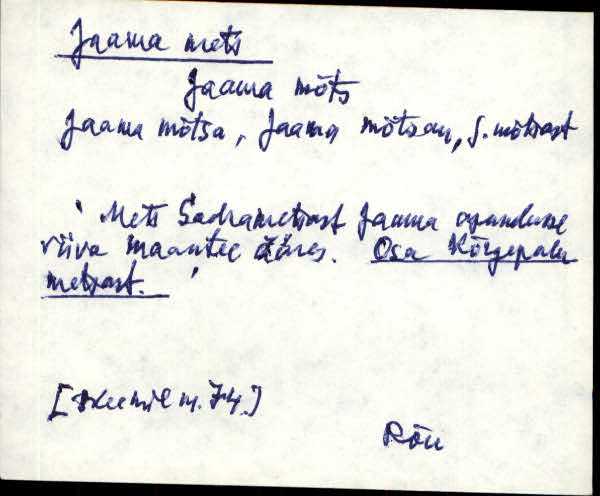 Jaama mets
Jaama mõts
Jaama mõtsa, Jaama mõtsan, J. mõtsast
' Mets Sadrametsast Jaama asunduse
viiva maantee ääres. Osa Kõrgepalu
metsast. '
m. 74.]
Rõu